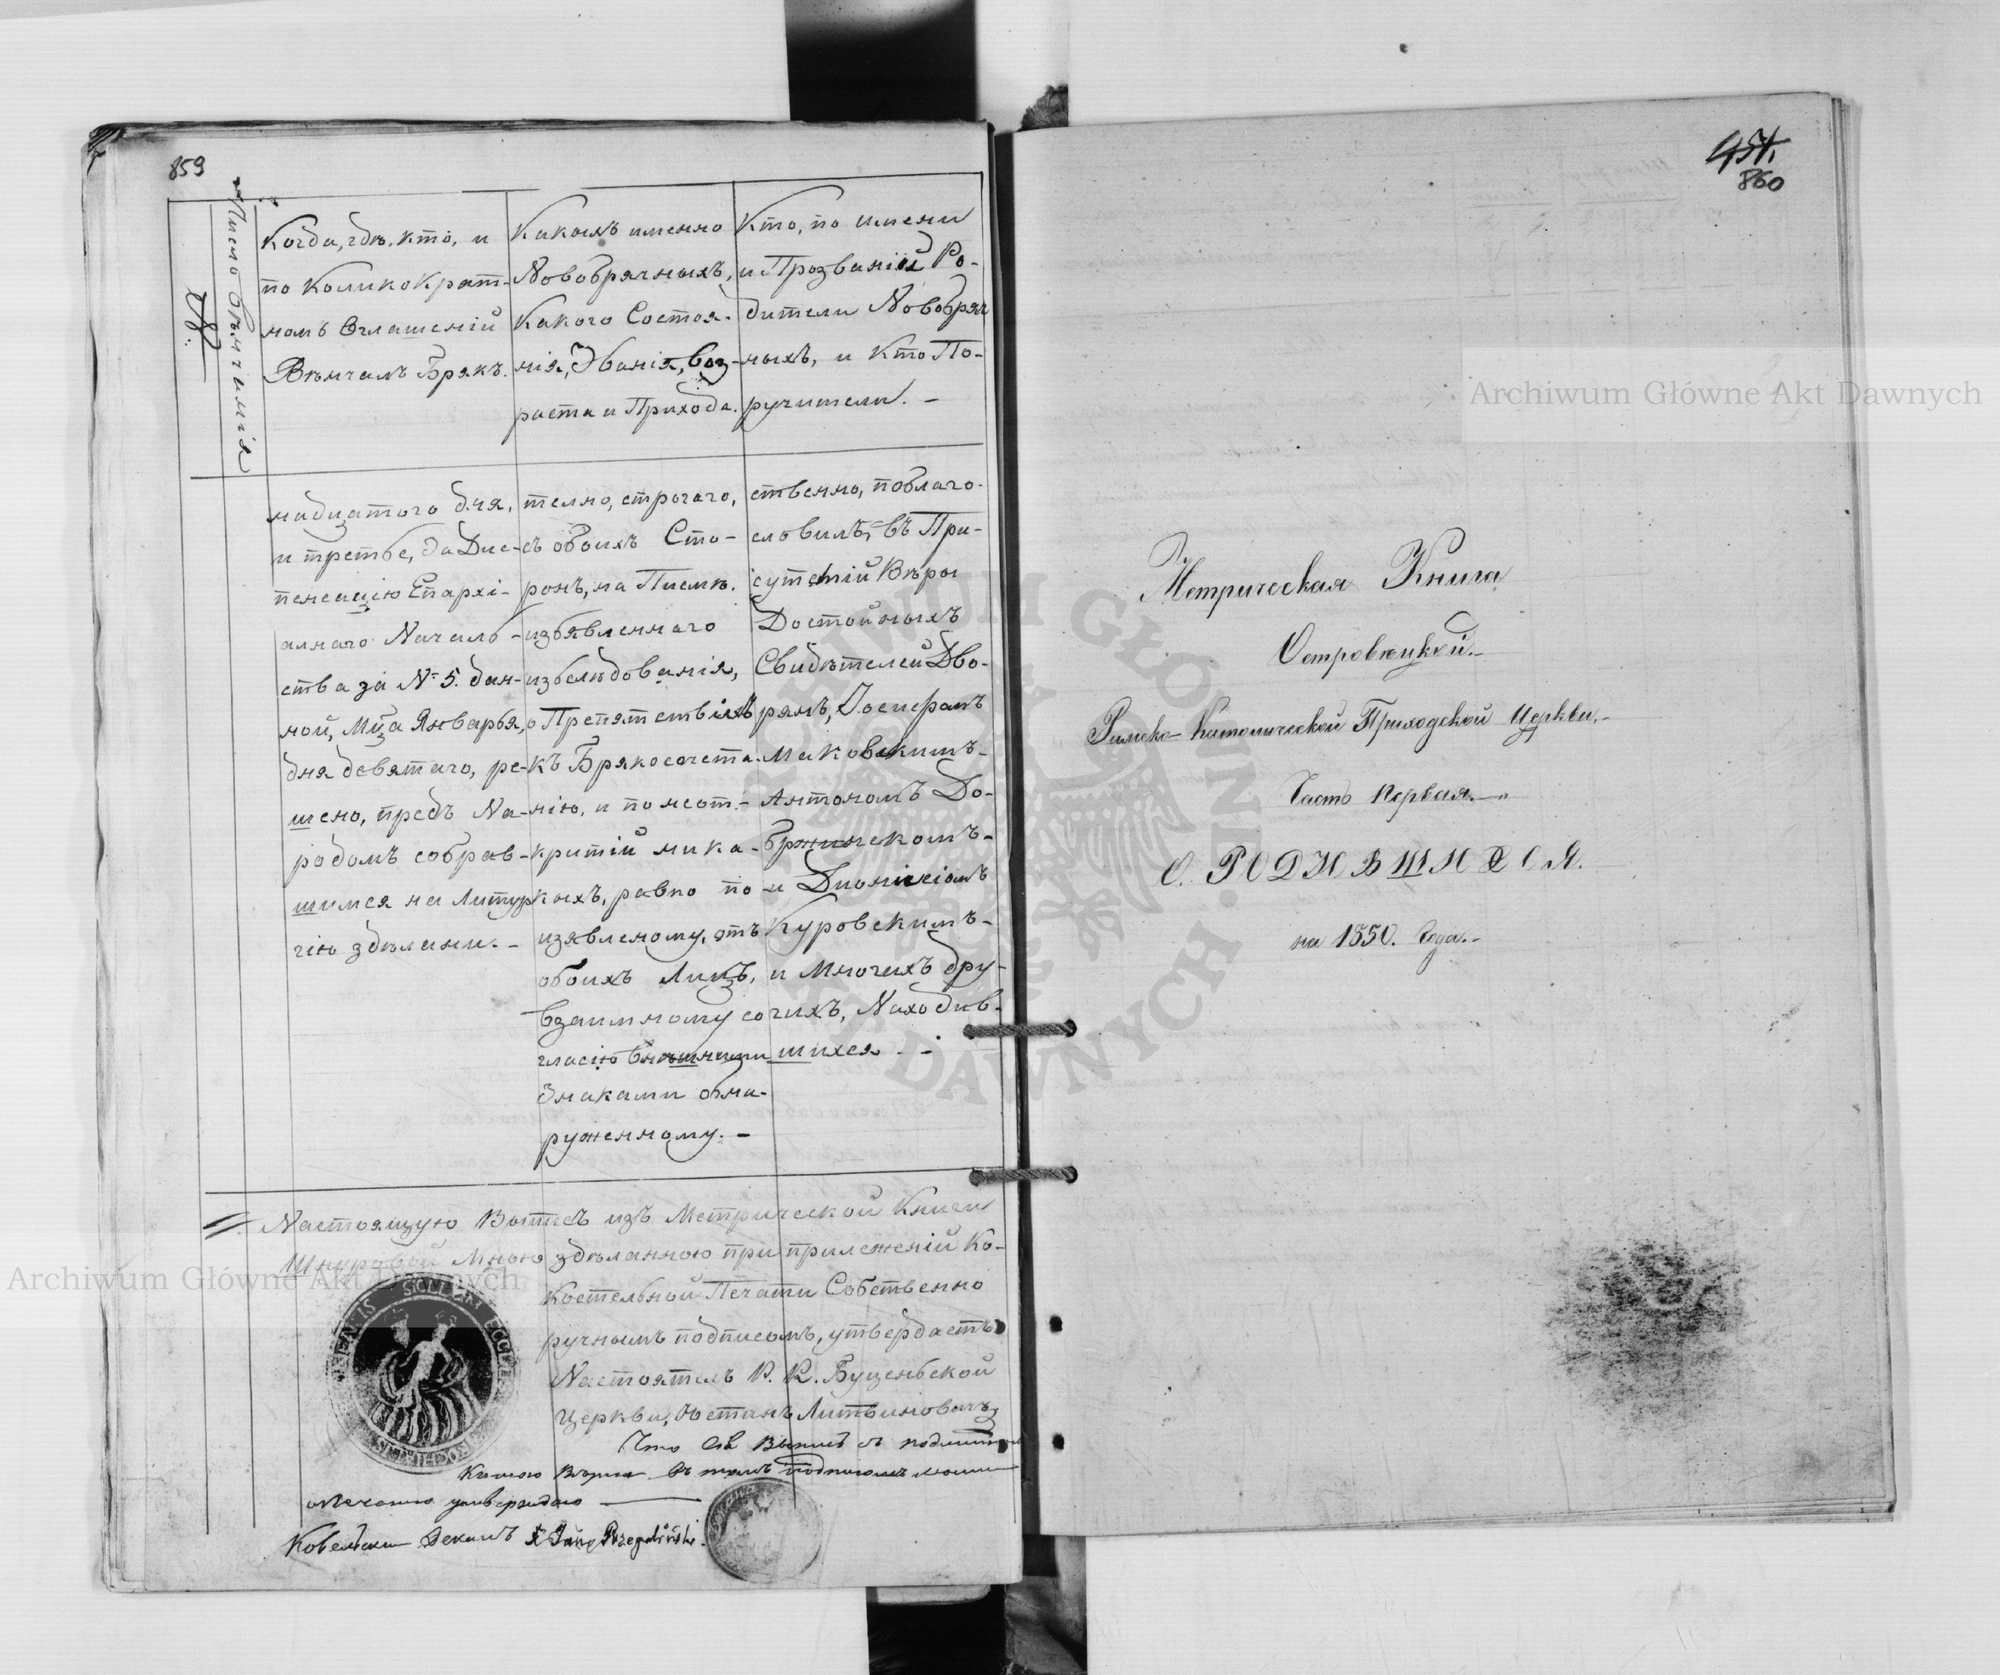 859
Число Вѣнчанія
№
Когда, гдѣ, кто, и
по Коликократ-
номъ Оглашеній
Вѣнчалъ Бракъ.
Какихъ именно
Новобрачныхъ,
Какого Состоя-
нія, Званія, Воз-
раста и Прихода.
Кто, по имени
и Прозваній Ро-
дители Новобрач
ныхъ, и Кто По-
ручители. –
надцатого дня,
и третье, за Дис-
пенсацію Епархі-
алнаго Началь-
ства за № 5. дан-
ной, Мца Января,
дня девятаго, ре-
шено, предъ На-
родомъ собрав-
шимся на Литур
гію здѣланы. –
телно, строгаго,
съ обоихъ Сто-
ронъ, на Писмѣ.
изъявленнаго
изслѣдованія,
о Препятствіяхъ
къ Бракосочета-
нію, и по неот-
критій ника-
кихъ, равно по
изявленому, отъ
обоихъ Лицъ,
взаимному со
гласію внѣшними
Знаками обна-
руженному. –
ственно, поблаго-
словилъ, въ При-
сутствій Вѣры
Достойныхъ
Свидѣтелей Дво-
рянъ, Іосифомъ
Маковскимъ-
Антономъ До-
бржинскомъ-
и Діонисіомъ
Куровскимъ-
и Многихъ дру-
гихъ, Находив-
шихся. –
Настоящую Выпись изъ Метрической Книги
Шнуровой Мною здѣланною при приложеній Ко-
Костельной Печати Собственно
ручнымъ подписомъ, утвердаетъ
Настоятель Р. К. Буценьской
Церкви, Литвиновичъ
Что Сія Выпись съ подлинною
Книгою Вѣрна въ томъ подписомъ моимъ
и печатью утверждаю
Ковельскій Деканъ X Jan
SIGILLUM ECCLE
860
Метрическая Книга
Островецкой
Римско-Католической Приходской Церкви.-
Часть Первая.-
О. РОДИВШИХСЯ.
на 1850. Года.-
Archiwum Główne Akt Dawnych
Archiwum Główne Akt Dawnych
ARCHIWUM GŁÓWNE AKT DAWNYCH